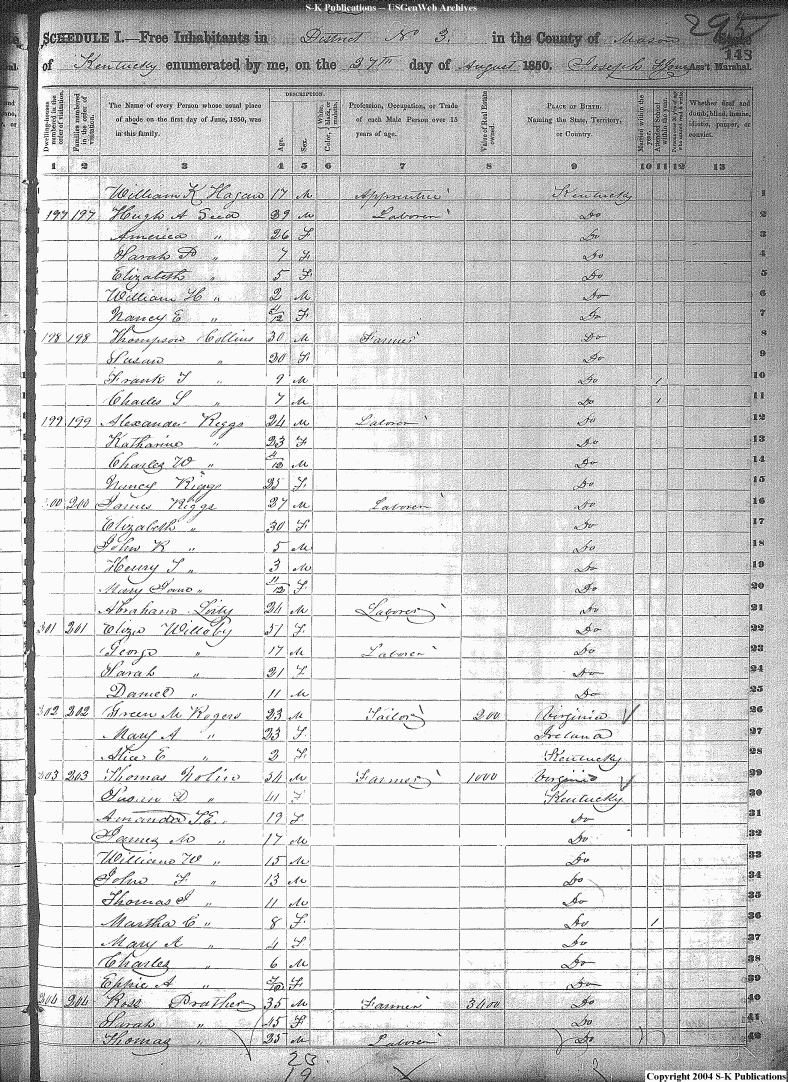 S-K Publications – USGenWeb Archives
295
SCHEDULE I.—Free Inhabitants in District No 3. in the County of Mason State
148
of Kentucky enumerated by me, on the 27th day of August 1850. Joseph Ass't Marshal.
Dwelling-houses numbered in the order of visitation.
Families numbered in the order of visitation.
The Name of every Person whose usual place of abode on the first day of June, 1850, was in this family.
DESCRIPTION.
Age.
Sex.
Color, White, black, or mulatto.
Profession, Occupation, or Trade of each Male Person over 15 years of age.
Value of Real Estate owned.
PLACE OF BIRTH. Naming the State, Territory, or Country.
Married within the year.
Attended School within the year.
Whether deaf and dumb, blind, insane, idiotic, pauper, or convict.
1 2 3 4 5 6 7 8 9 10 11 12 13
William K Hagan 17 M Apprentice Kentucky 1
197 197 Hugh A 39 M Laborer Do 2
America " 26 F Do 3
Sarah " 7 F Do 4
Elizabeth " 5 F Do 5
William H " 2 M Do 6
Nancy E " F Do 7
198 198 Thompson Collins 30 M Farmer Do 8
Susan " 30 F Do 9
Frank T " 9 M Do 1 10
Charles S " 7 M Do 1 11
199 199 Alexander Riggs 24 M Laborer Do 12
Katharine " 23 F Do 13
Charles W " M Do 14
Nancy Riggs 25 F Do 15
200 200 James Riggs 27 M Laborer Do 16
Elizabeth " 30 F Do 17
John R " 5 M Do 18
Henry T " 3 M Do 19
Mary Jane " 11/12 F Do 20
Abraham 24 M Laborer Do 21
201 201 Eliza Willoby 51 F Do 22
George " 17 M Laborer Do 23
Sarah " 21 F Do 24
Daniel " 11 M Do 25
202 202 Green M Rogers 23 M Tailor 200 Virginia 26
Mary A " 23 F Ireland 27
Alice E " 2 F Kentucky 28
203 203 Thomas Nolin 54 M Farmer 1000 Virginia 29
Susan D " 41 F Kentucky 30
Amanda F.E. " 19 F Do 31
James M " 17 M Do 32
William W " 15 M Do 33
John F " 13 M Do 34
Thomas J " 11 M Do 35
Martha C " 8 F Do 1 36
Mary A " 4 F Do 37
Charles " 6 M Do 38
Effie A " F Do 39
204 204 Ross Prather 35 M Farmer 3400 Do 40
Sarah " 45 F Do 41
Thomas " 25 M Laborer Do 42
23
19
Copyright 2004 S-K Publications